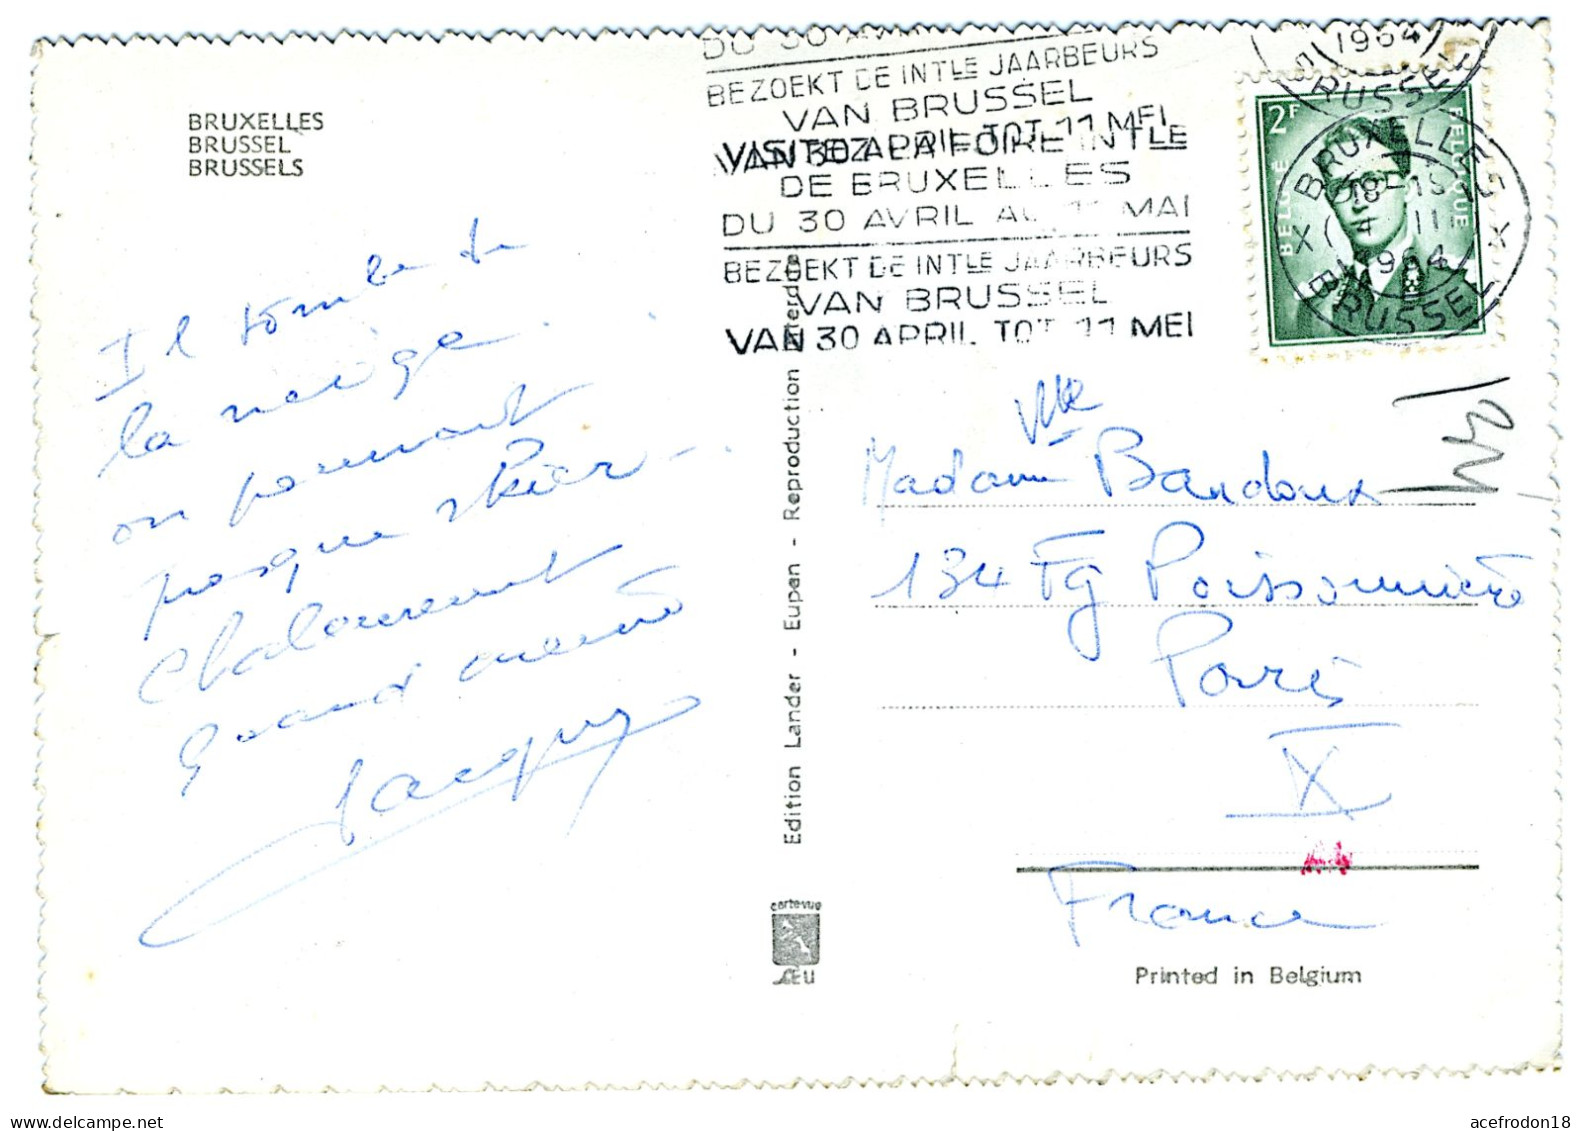 BRUXELLES
BRUSSEL
BRUSSELS
Il tombe de
la neige . . .
on pourrait
presque skier -..
Chaleurement
Quand même
Jacquy
DU 30 AVRIL
BEZOEKT DE INTLE JAARBEURS
VAN BRUSSEL
VAN 30 APRIL TOT 11 MEI
VISITEZ LA FOIRE INTLE
DE BRUXELLES
DU 30 AVRIL AU 11 MAI
BEZOEKT DE INTLE JAARBEURS
VAN BRUSSEL
VAN 30 APRIL TOT 11 MEI
1964
BRUSSEL
BRUXELLES X
18-19
4 II
1964
BRUSSEL X
2F
BELGIË
BELGIQUE
Mlle
Madame Bardoux
134 Fg Poissonnière
Paris
IX
France
Edition Lander - Eupen - Reproduction
cartevue
LEU
Printed in Belgium
acefrodon18